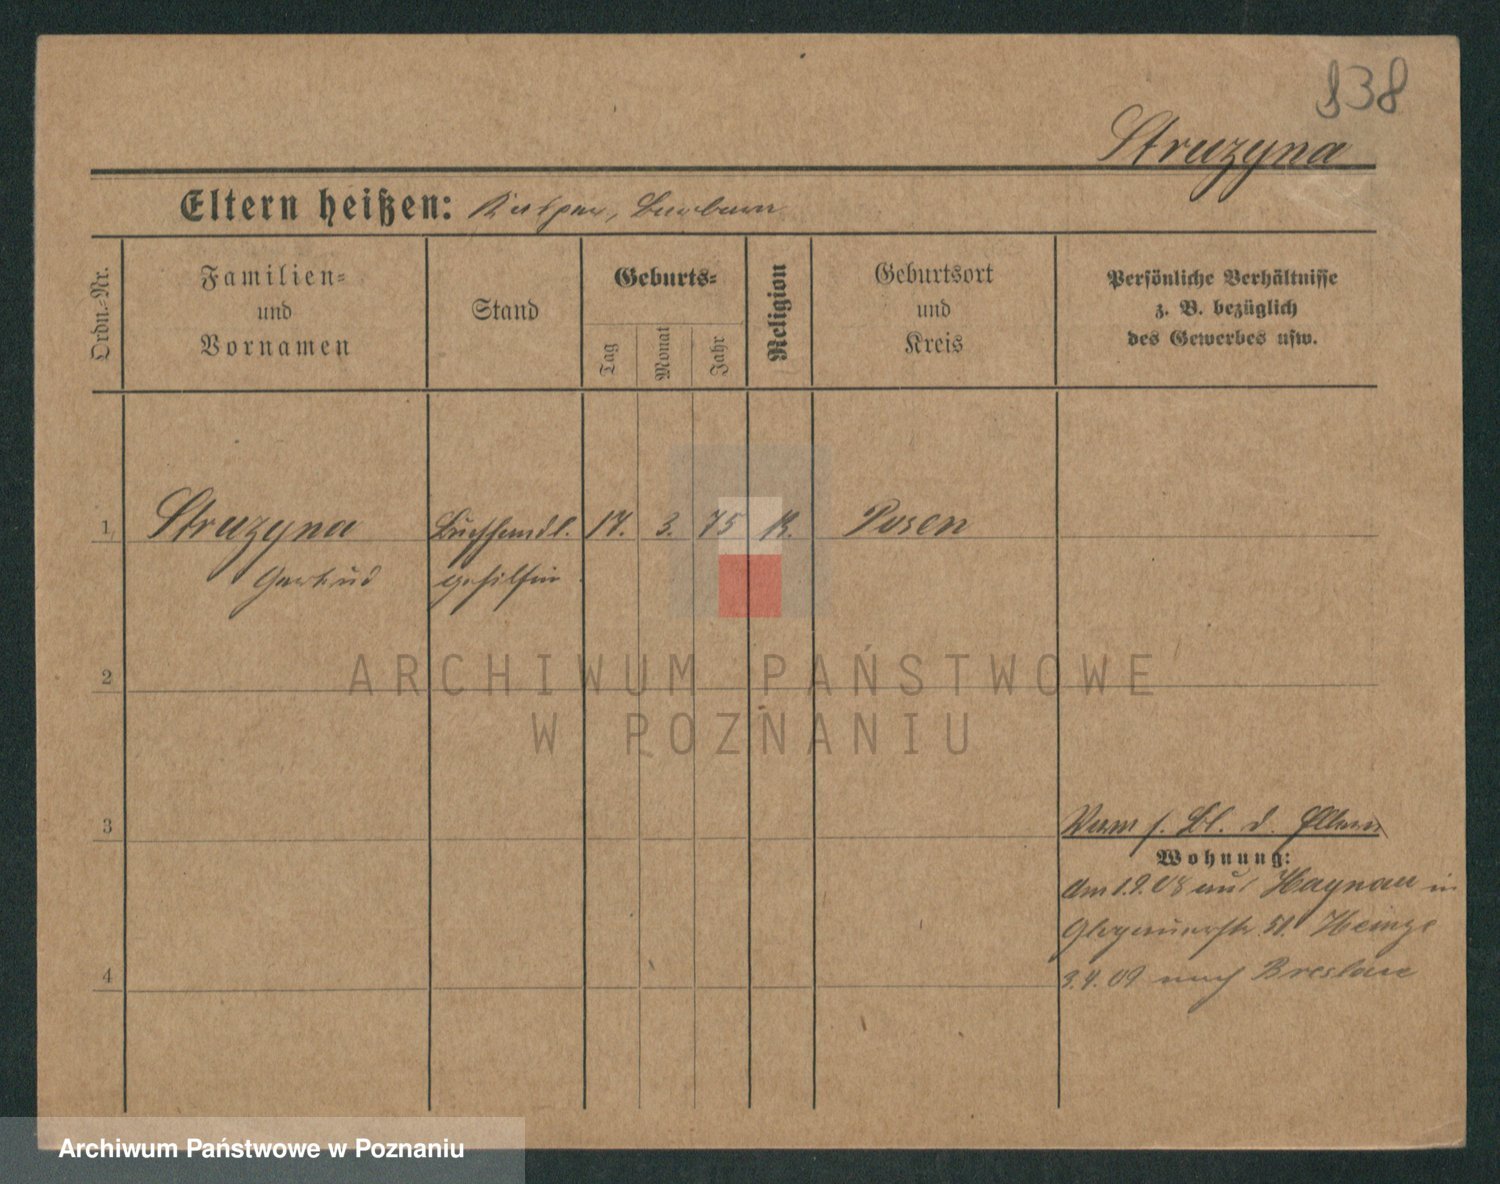 838
Struzyna
Eltern heißen: Kasper, Barbara
Ordn.-Nr.
Familien-
und
Vornamen
Stand
Geburts-
Tag
Monat
Jahr
Religion
Geburtsort
und
Kreis
Persönliche Verhältnisse
z. B. bezüglich
des Gewerbes usw.
1, Struzyna Buchhandl. 17. 3. 75 K. Posen
Gertrud gehilfin
2
ARCHIWUM PAŃSTWOWE
W POZNANIU
3
s. Bl. d. Eltern
Wohnung:
am 1.9.08 aus Haynau in
Glogauerstr. 51. Heinze
3.4.09 nach Breslau
4
Archiwum Państwowe w Poznaniu